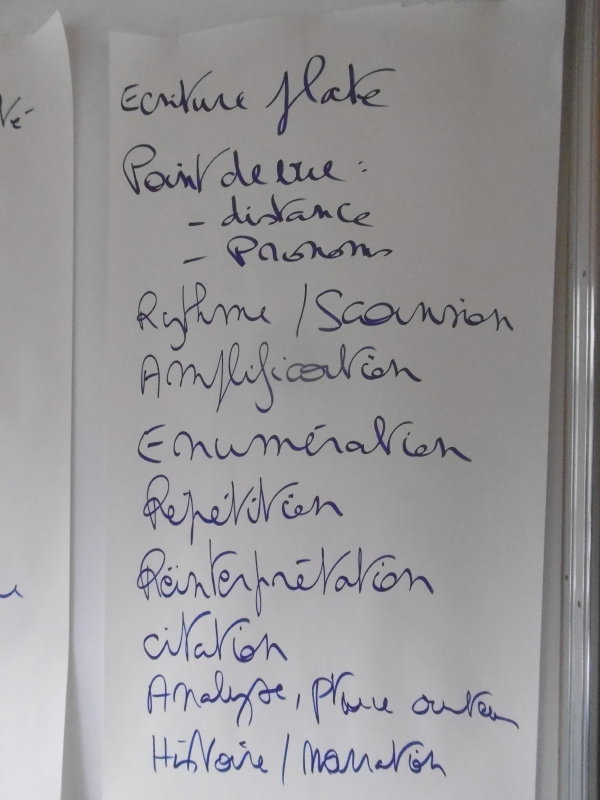 té
Ecriture plate
Point de vue :
- distance
- Pronoms
Rythme / Scansion
Amplification
Enumération
Répétition
Réinterprétation
citation
Analyse, place auteur
Histoire / narration